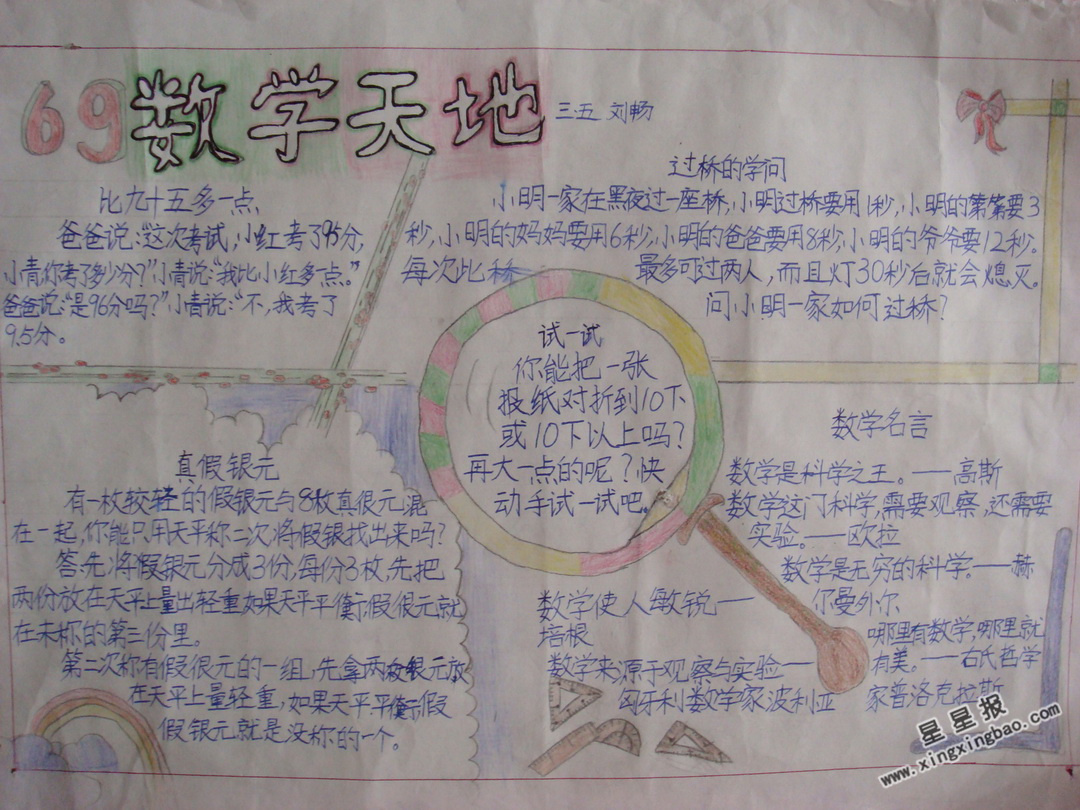 69 数学天地
三.五 刘畅
比九十五多一点
爸爸说:“这次考试,小红考了95分,
小青你考了多少分?”小青说:“我比小红多点。”
爸爸说:“是96分吗?”小青说:“不,我考了
9.5分。
过桥的学问
小明一家在黑夜过一座桥,小明过桥要用1秒,小明的弟弟要3
秒,小明的妈妈要用6秒,小明的爸爸要用8秒,小明的爷爷要12秒。
每次此桥最多可过两人,而且灯30秒后就会熄灭。
问小明一家如何过桥?
试一试
你能把一张
报纸对折到10下
或10下以上吗?
再大一点的呢?快
动手试一试吧。
真假银元
有一枚较轻的假银元与8枚真银元混
在一起,你能只用天平称二次,将假银找出来吗?
答:先将假银元分成3份,每份3枚,先把
两份放在天平上量出轻重如果天平平衡,假银元就
在未称的第三份里。
第二次称有假银元的一组,先拿两枚银元放
在天平上量轻重,如果天平.平衡,假
假银元就是没称的一个。
数学名言
数学是科学之王。——高斯
数学这门科学,需要观察,还需要
实验。——欧拉
数学是无穷的科学。——赫
尔曼外尔
数学使人敏锐——
培根
哪里有数学,哪里就
有美。——右氏哲学
家普洛克拉斯
数学来源于观察与实验——
匈牙利数学家波利亚
星星报
www.xingxingbao.com